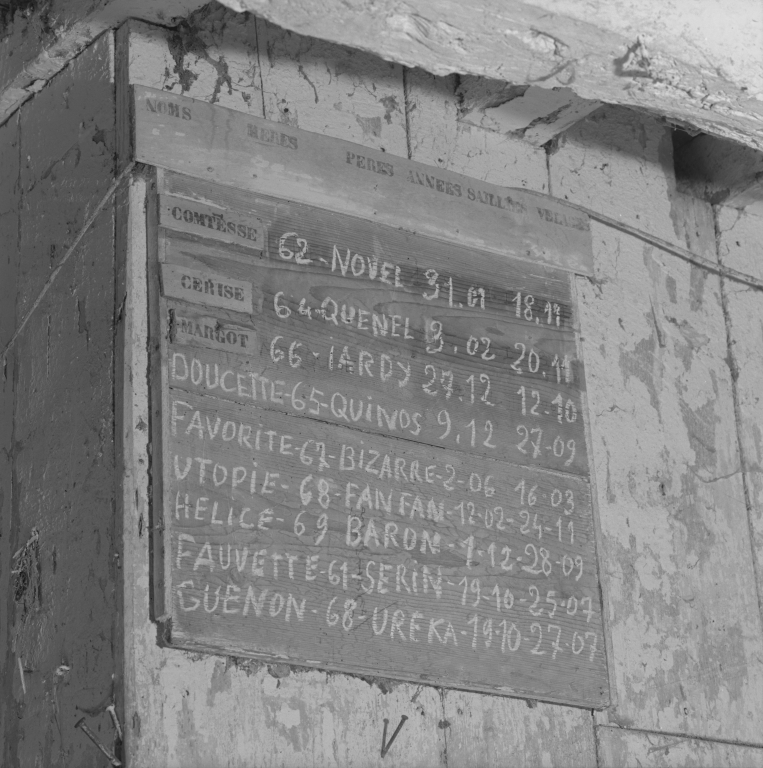 NOMS MERES PERES ANNEES SAILLIES VELAGES
COMTESSE 62-NOVEL 31.01 18.11
CERISE 64-QUENEL 3.02 20.11
MARGOT 66-iARDY 27.12 12-10
DOUCETTE-65-QUINOS 9.12 27-09
FAVORITE-67-BIZARRE-2-06 16-03
UTOPIE-68-FANFAN-12-02-24-11
HELICE-69 BARON-1-12-28-09
FAUVETTE-61-SERIN-19-10-25-07
GUENON-68-UREKA-19-10-27-07